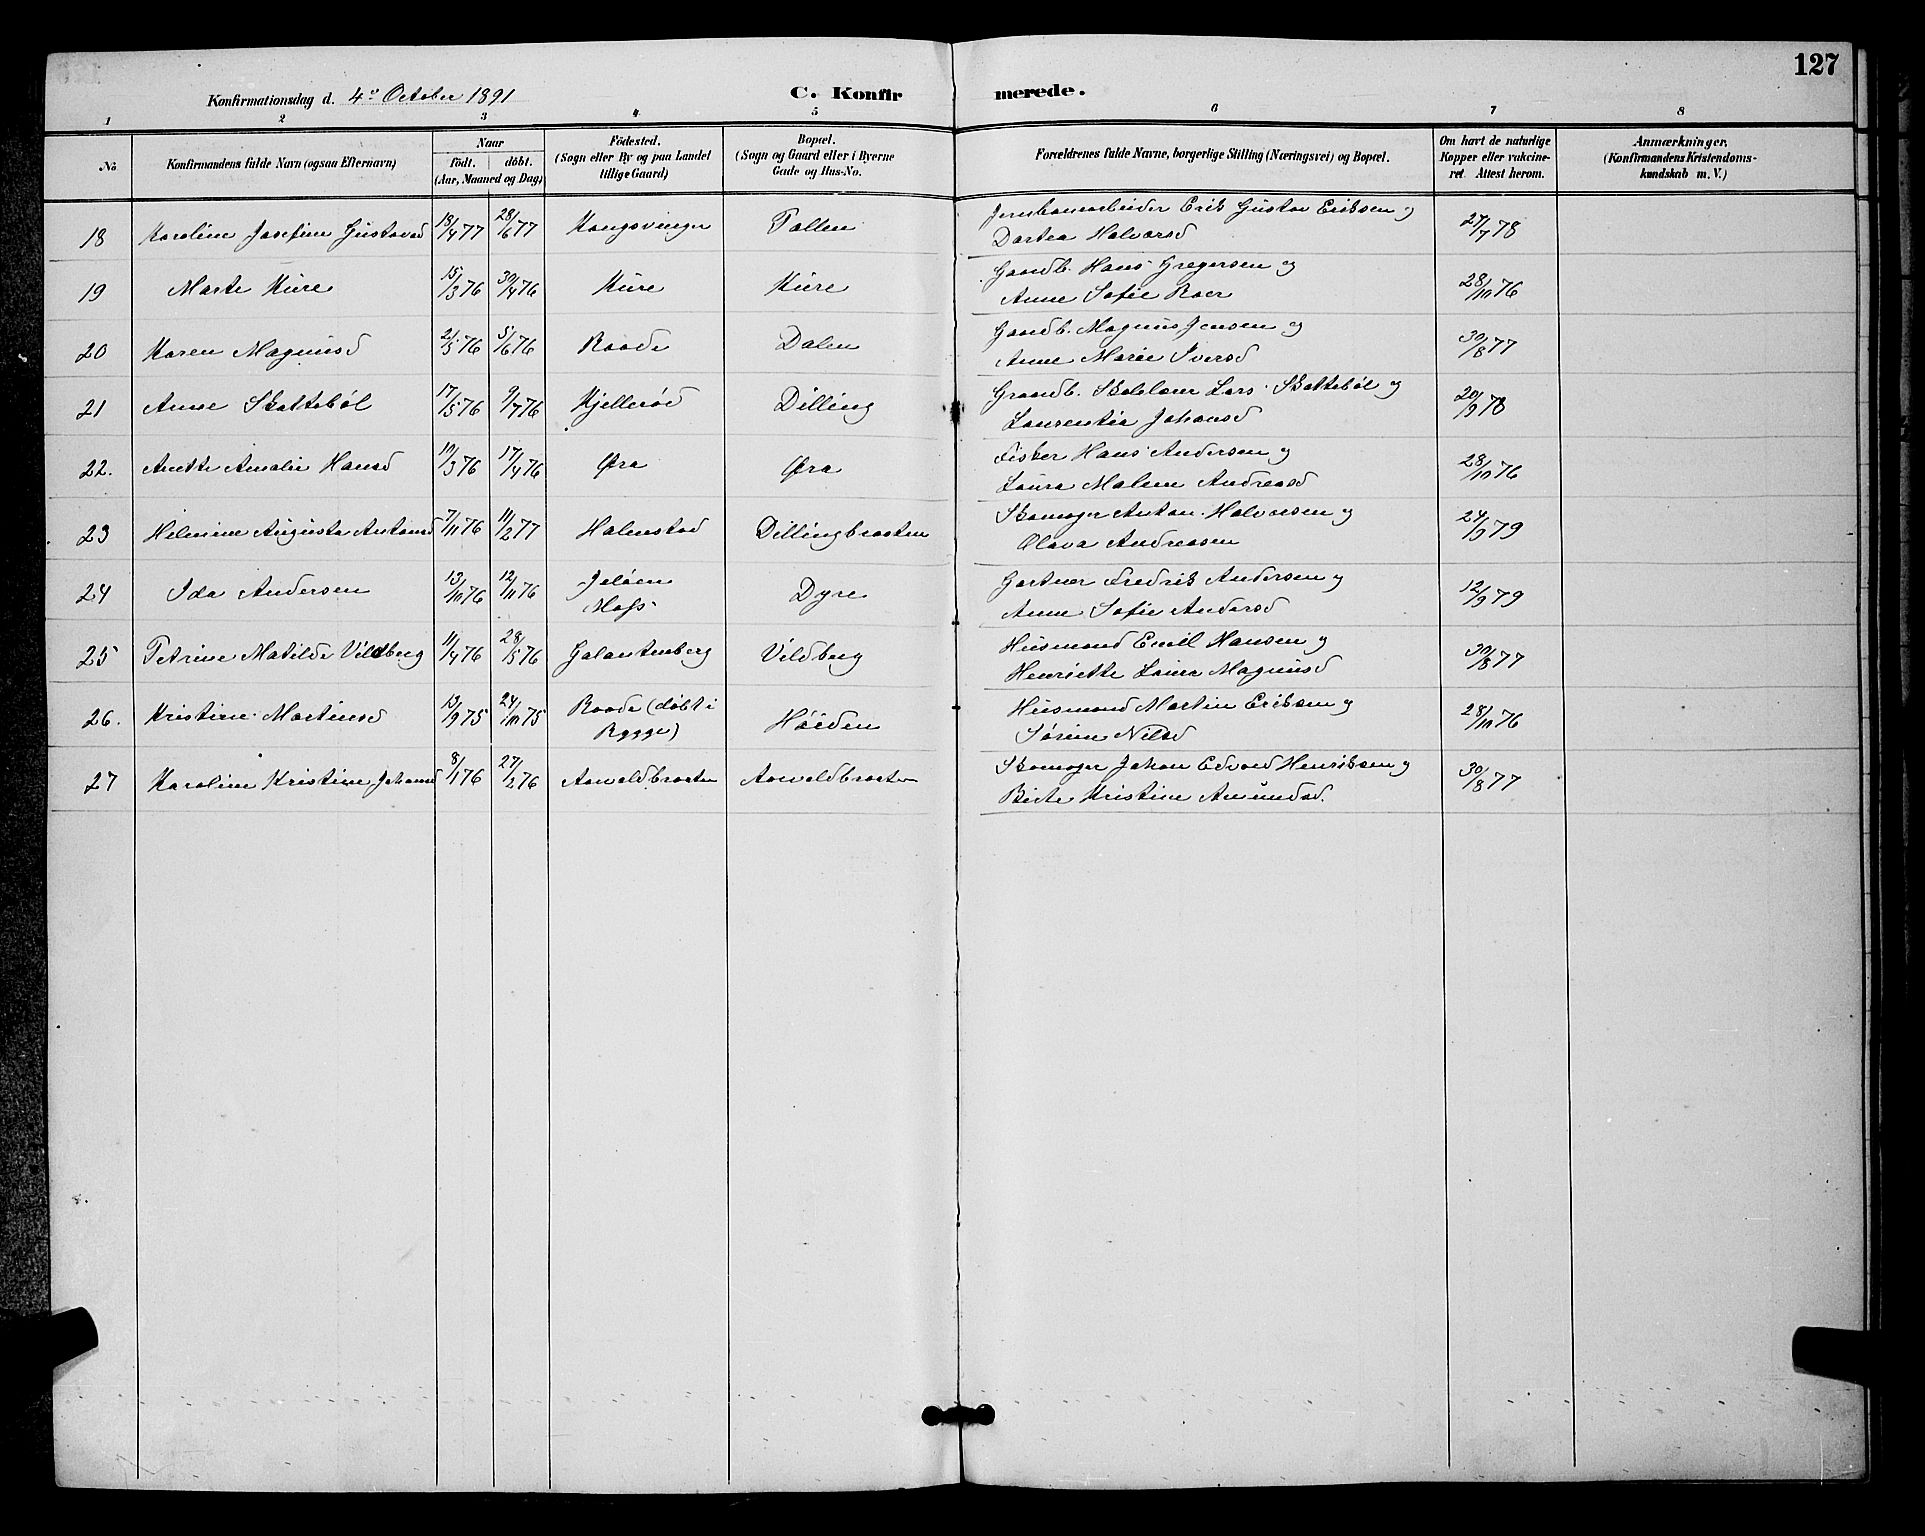 127
Konfirmationsdag d. 4de October 1891 C. Konfir merede.
1 2 3 4 5 6 7 8
No. Konfirmandens fulde Navn (ogsaa Efternavn) Naar født. døbt. (Aar, Maaned og Dag) Fødested. (Sogn eller By og paa Landet tillige Gaard) Bopæl. (Sogn og Gaard eller i Byerne Gade og Hus-No. Forældrenes fulde Navne, borgerlige Stilling (Næringsvei) og Bopæl. Om havt de naturlige Kopper eller vakcineret. Attest herom. Anmærkninger. (Konfirmandens Kristendomskundskab m. V.)
18 Karoline Josefine Gustavsd 18/4 77 28/6 77 Kongsvinger Tollen Jernbanearbeider Erik Gustav Eriksen og
Dortea Halvorsd 27/7 78
19 Marte Kure 15/3 76 30/4 76 Kure Kure Gaardb. Hans Gregersen og
Anne Sofie Roer 28/10 76
20 Karen Magnusd 21/3 76 5/6 76 Raade Dalen Gaardb. Magnus Jensen og
Anne Marie Iversd 30/8 77
21 Anne Skattebøl 17/5 76 9/7 76 Kjellerød Dilling Graardb. Skolelærer Lars Skattebøl og
Laurentia Johansd 20/9 78
22. Anette Amalie Hansd 10/3 76 17/4 76 Øra Øra Fisker Hans Andersen og
Laura Malene Andreasd 28/10 76
23 Helmine Augusta Antonsd 7/11 76 11/2 77 Halmstad Dillingbraaten Skomager Anton Halvorsen og
Olava Andreasen 24/9 79
24 Ida Andersen 13/10 76 12/11 76 Jeløen
Moss Dyre Gartner Fredrik Andersen og
Anne Sofie Andersd 12/9 79
25 Petrine Matilde Vildberg 11/4 76 28/5 76 Galantenberg Vildberg Husmand Emil Hansen og
Henriette Laura Magnusd 30/8 77
26. Kristine Martinsd 13/9 75 24/10 75 Raade (døbt i
Rygge) Høiden Husmand Martin Eriksen og
Sørine Nilsd 28/10 76
27 Karoline Kristine Johansd 8/1 76 27/2 76 Aavoldbraaten Aavoldbraaten Skomager Johan Edvard Henriksen og
Birte Kristine Amundsd. 30/8 77